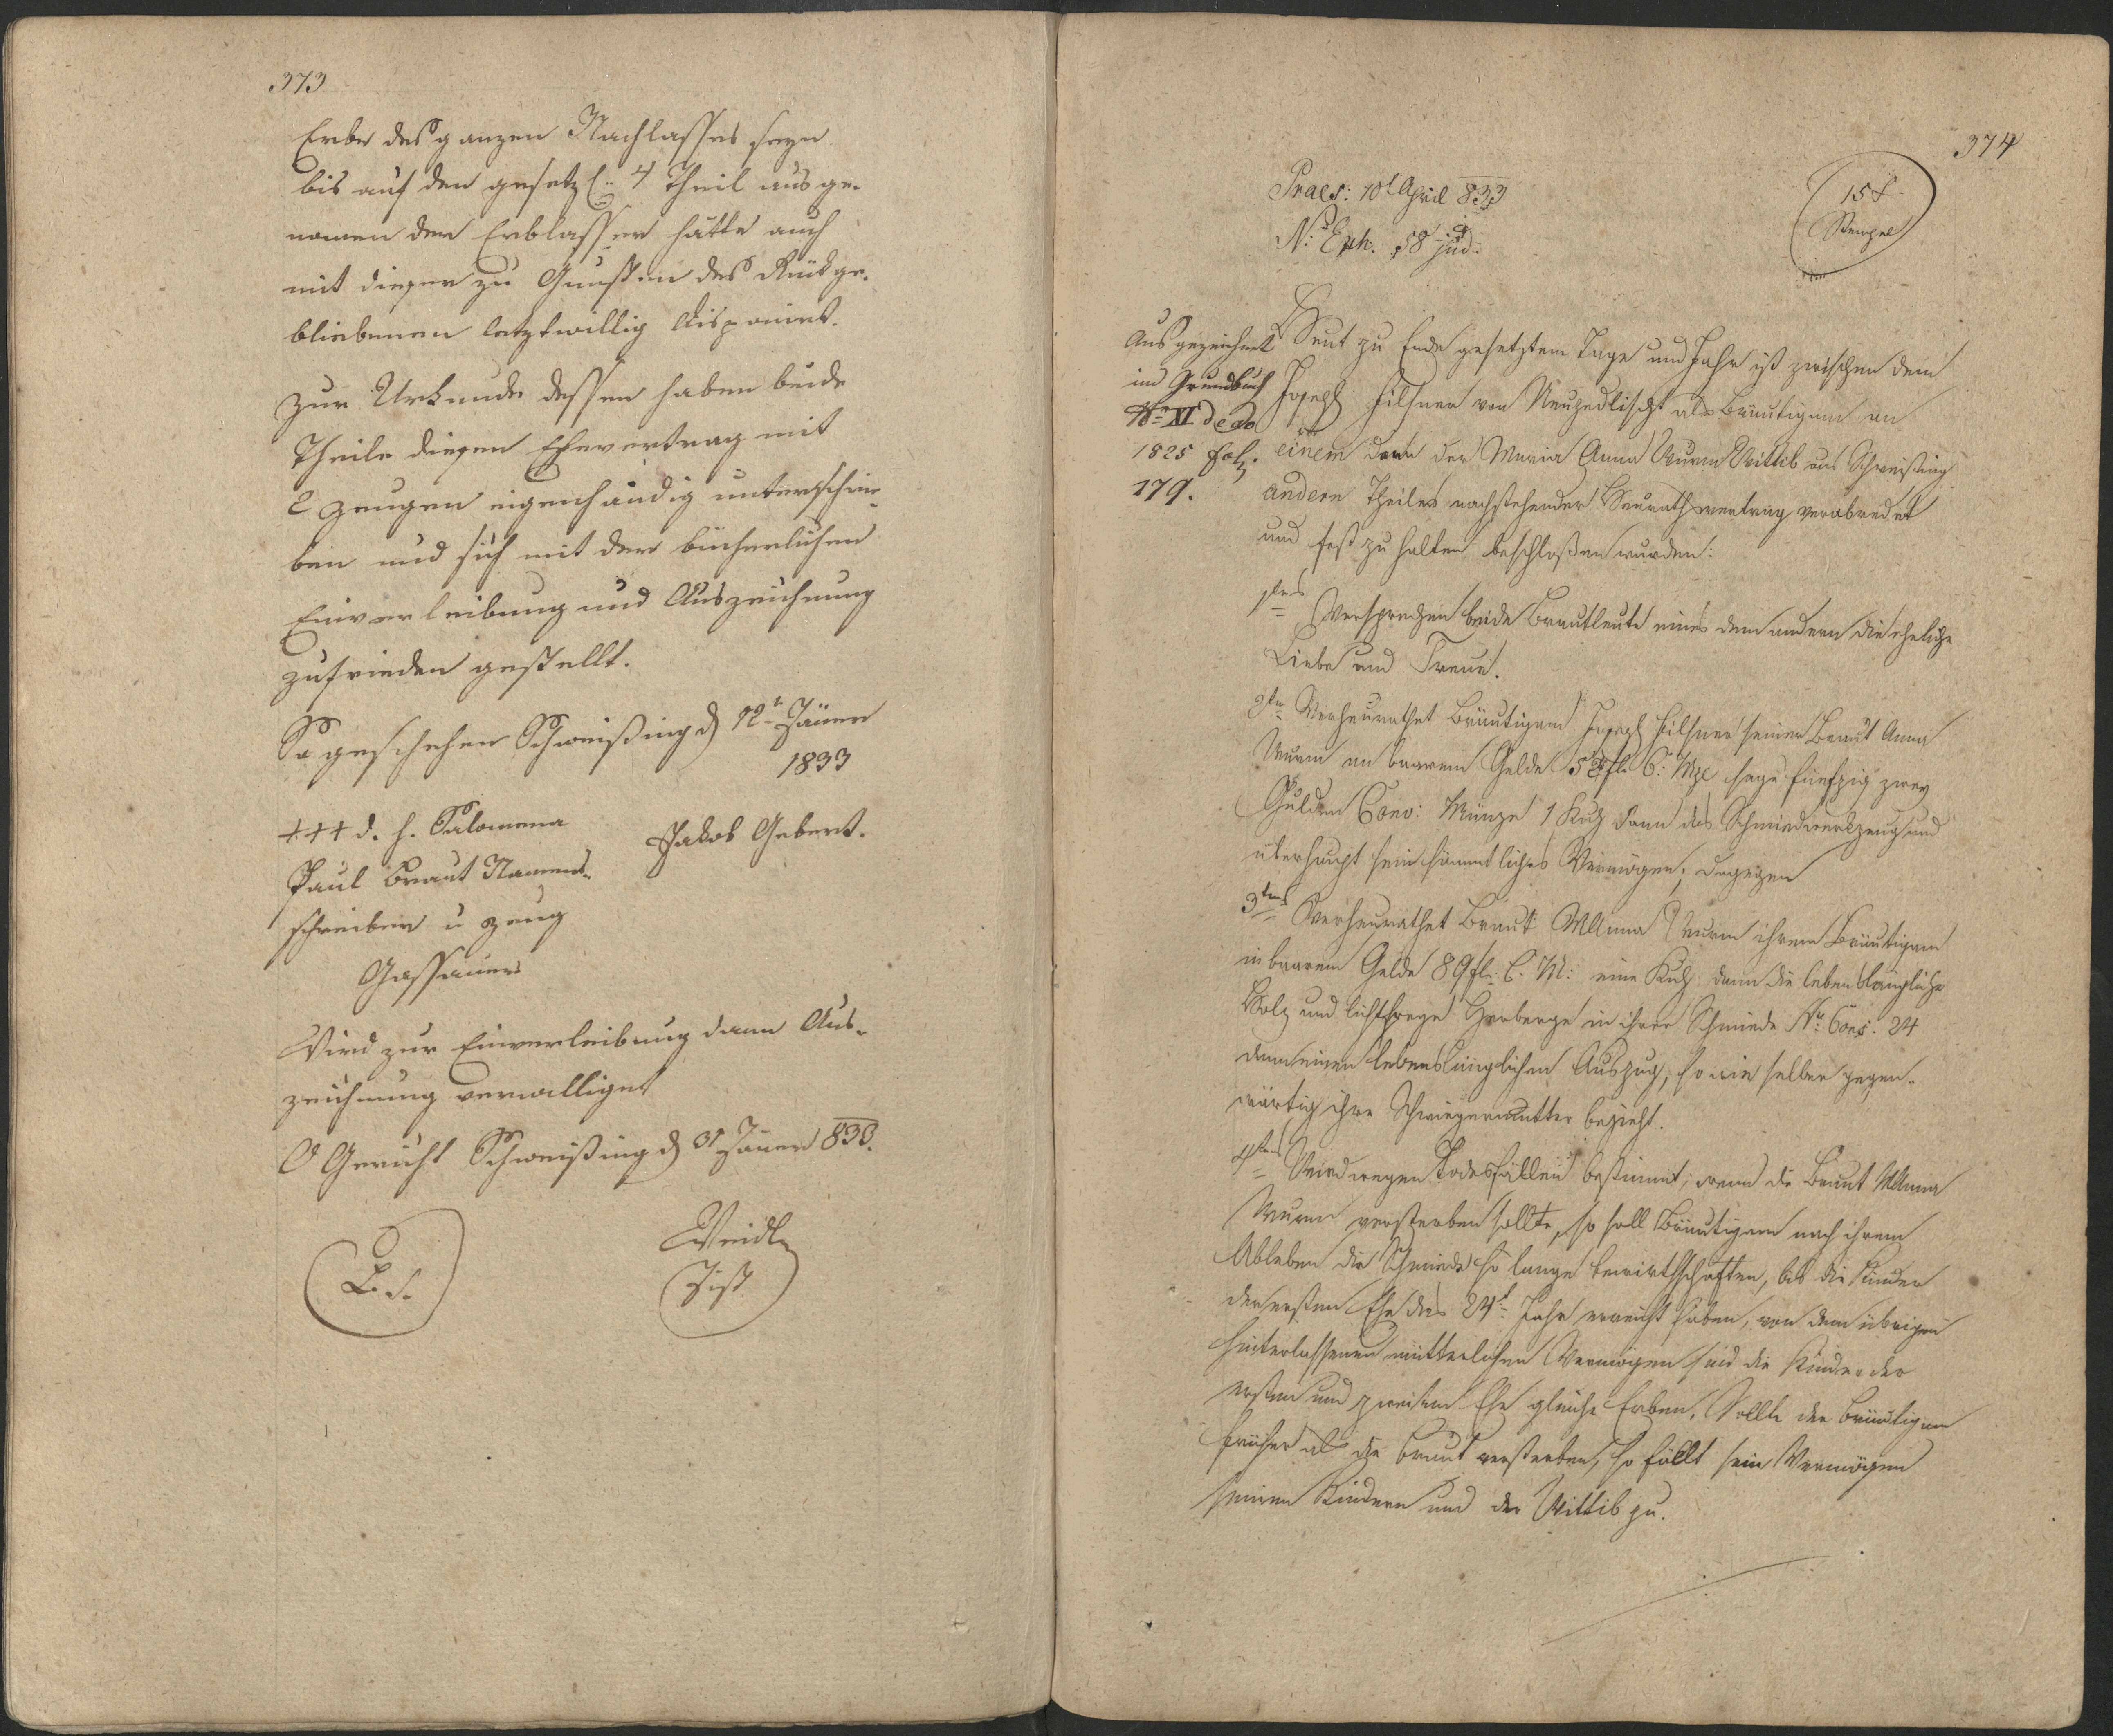 373
Erbe des ganzen Nachlasses seyn
bis auf den gesetzl: 4 Theil ausge-
nomen der Erblasser hätte auch
mit diesen zu Gunsten des Rückge-
bliebenen letztwillig disponirt.
Zur Urkunde dessen haben beide
Theile diesen Ehevertrag mit
2 Zeugen eigenhändig unterschrie-
ben und sich mit der bücherlichen
Einverleibung und Auszeichnung
zufrieden gestellt.
So geschehen Schweißing d 12t Jäner
1833
+++ d. h. Salomena
Paul Braut Namens-
schreiber u Zeug
Gassauer
Jakob Gebert.
Wird zur Einverleibung dann Aus-
zeichnung verwilliget
O Gericht Schweißing d 31 Jäner 833.
L. S.
Weidl
Just
374
Praes: 10t April 833
N: Exh. 58 jud:
15 x
Stempel
Ausgezeichnet
im Grundbuch
No XI de ao
1825 Fol:
179.
Heut zu Ende gesetztem Tage und Jahr ist zwischen dem
Joseph Hilsner von Neuzedlischt als Bräutigam an
einem dann der Maria Anna Wurm Wittib aus Schweißing
andern Theiles nachstehender Heurathsvertrag verabredet
und fest zu halten beschloßen wurden:
1tens Versprechen beide Brautleute eines dem andern die eheliche
Liebe und Treue.
2tens Verheurathet Bräutigam Joseph Hilsner seiner Braut Anna
Wurm an baarem Gelde 52 fl C: Mze sage fünfzig zwey
Gulden Conv: Münze 1 Kuh dann das Schmiedwerkzeug und
überhaupt sein sämmtliches Vermögen; dagegen
3tens Verheurathet Braut MAnna Wurm ihrem Bräutigam
in baarem Gelde 89 fl. C. M: eine Kuh dann die lebenslängliche
Holz und lichtfreye Herberge in ihrer Schmiede Nro Cons: 24
dann einen lebenslänglichen Auszug, so wie selber gegen-
wärtig ihre Schwiegermutter bezieht.
4tens Wird wegen Todesfällen bestimmt; wenn die Braut MAnna
Wurm versterben sollte, so soll Bräutigam nach ihrem
Ableben die Schmiede so lange bewirthschaften, bis die Kinder
der ersten Ehe das 24t Jahr erreicht haben, von dem übrigen
hinterlassenen mütterlichen Vermögen sind die Kinder der
ersten und zweiten Ehe gleiche Erben. Sollte der Bräutigam
früher als die Braut versterben, so fällt sein Vermögen
seinen Kindern und der Wittib zu.